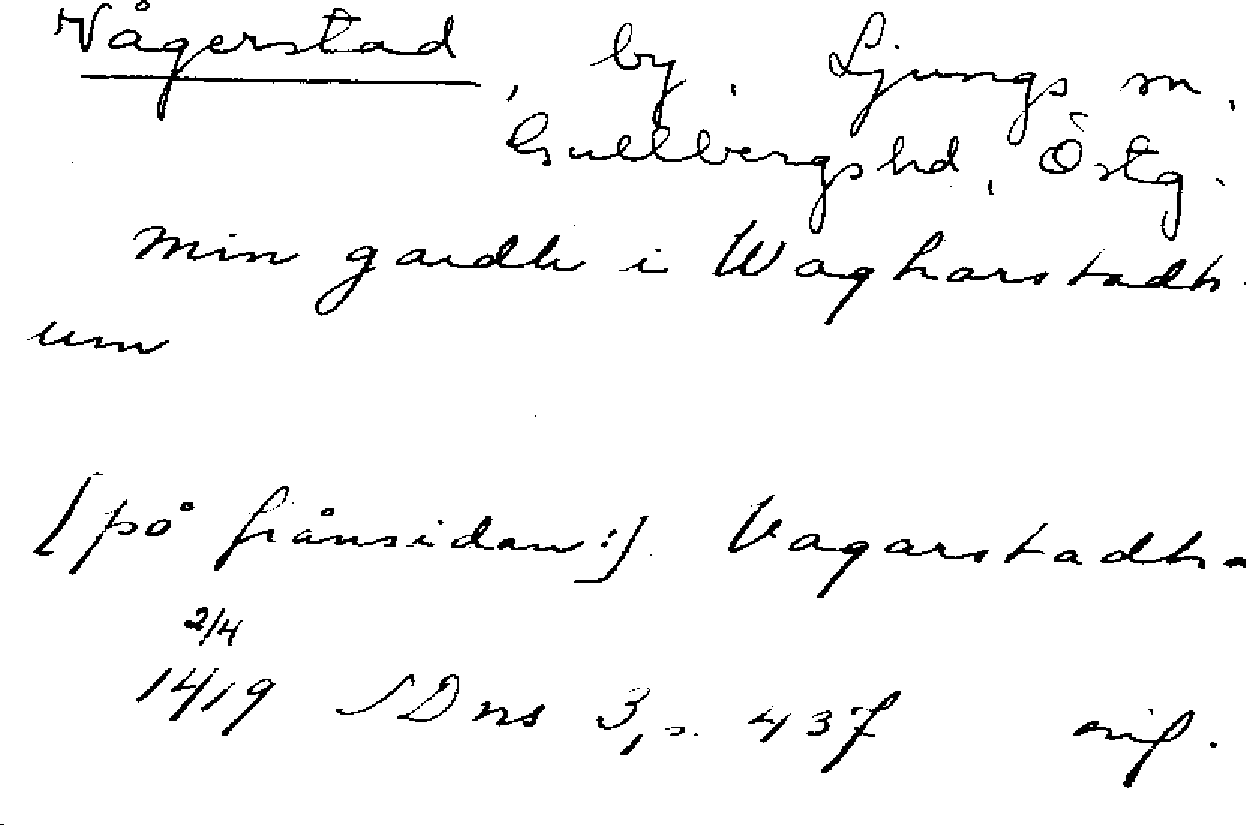 Vågerstad, by, Ljungs sn,
Gullbergs hd, Östg.
min gardh i Wagharstadh-
um
[på frånsidan:]. Vagarstadha
2/4
1419 SDns 3, s. 437 orig.